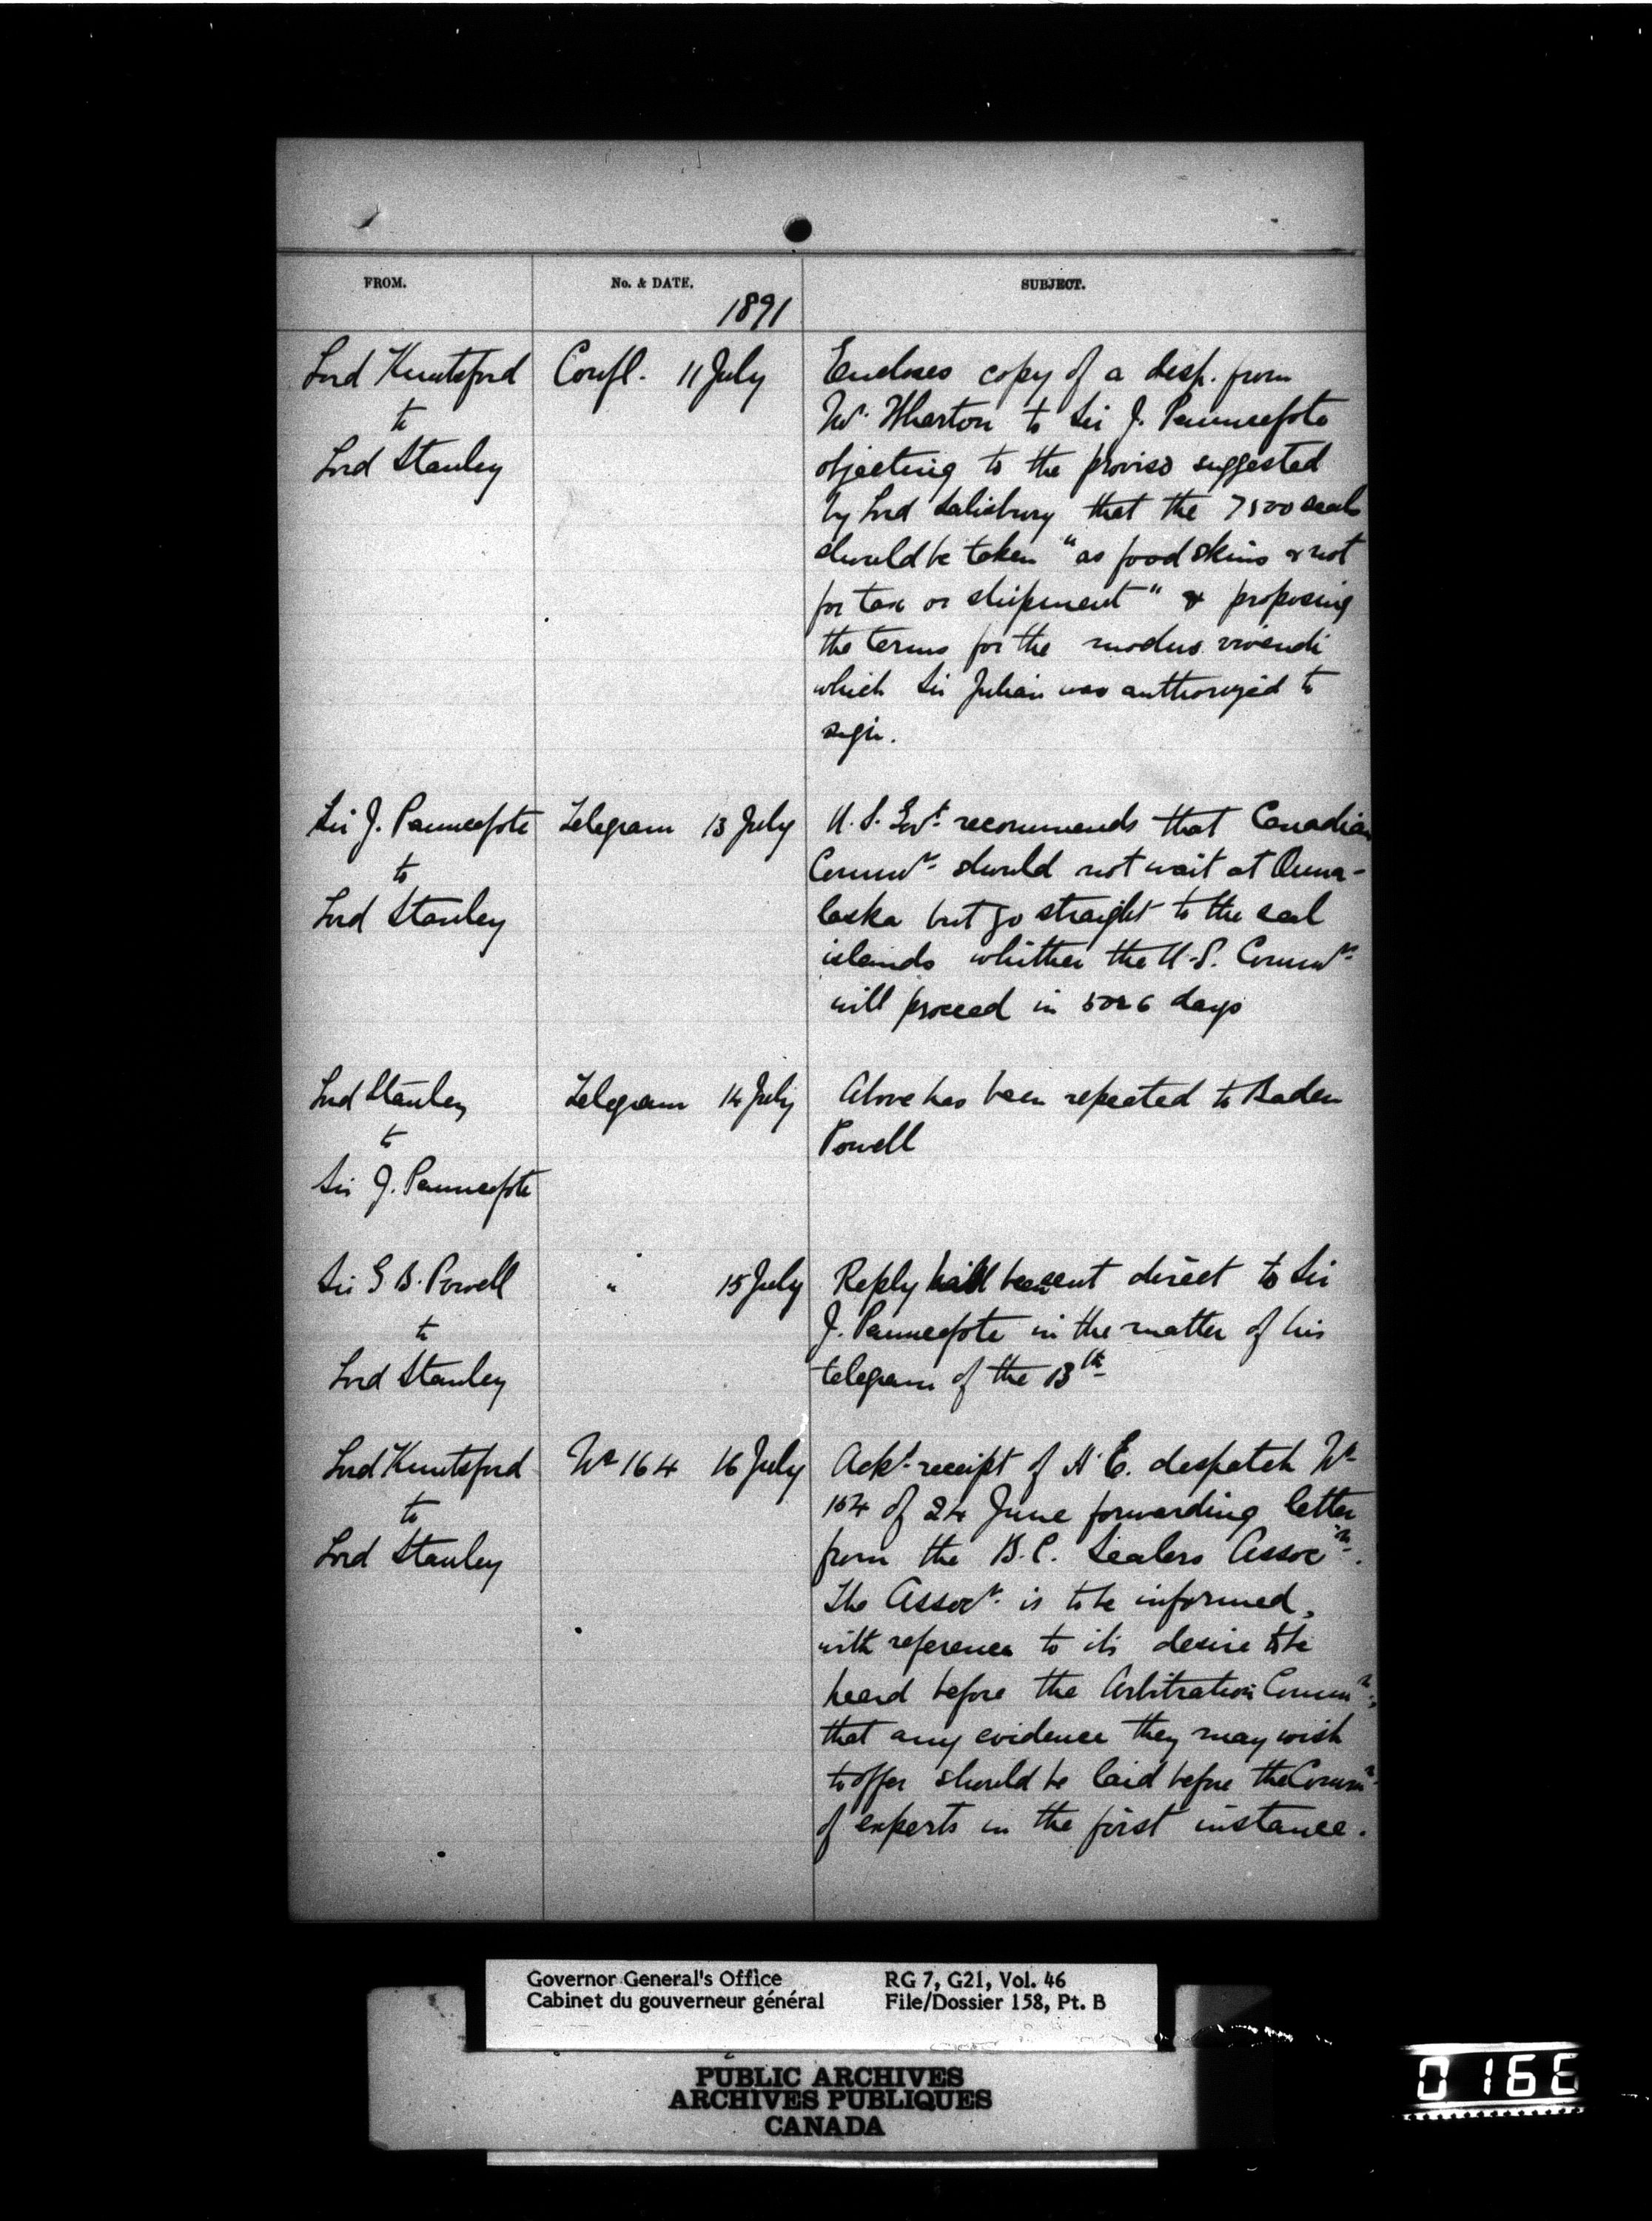 FROM. No. & DATE. SUBJECT.
1891
Lord Knutsford Confl. 11 July Encloses copy of a desp. from
to Mr. Wharton to Sir J. Pauncefote
Lord Stanley objecting to the proviso suggested
by Lord Salisbury that the 7500 seals
should be taken "as food skins & not
for tax or shipment" & proposing
the terms for the modus vivendi
which Sir Julian was authorized to
sign.
Sir J. Pauncefote Telegram 13 July U.S. Govt. recommends that Canadian
to Commrs. should not wait at Ouna-
Lord Stanley laska but go straight to the seal
islands whither the U.S. Commrs.
will proceed in 5 or 6 days
Lord Stanley Telegram 14 July Above has been repeated to Baden
to Powell
Sir J. Pauncefote
Sir G B. Powell " 15 July Reply sent direct to Sir
to J. Pauncefote in the matter of his
Lord Stanley telegram of the 13th
Lord Knutsford No 164 16 July Ackt. receipt of H.E. despatch No
to 164 of 24 June forwarding letter
Lord Stanley from the B.C. Sealers Assocn.
The Assocn. is to be informed,
with reference to its desire to be
heard before the Arbitration Commn.,
that any evidence they may wish
to offer should be laid before the Commn.
of experts in the first instance.
Governor General's Office RG 7, G21, Vol. 46
Cabinet du gouverneur général File/Dossier 158, Pt. B
PUBLIC ARCHIVES
ARCHIVES PUBLIQUES
CANADA